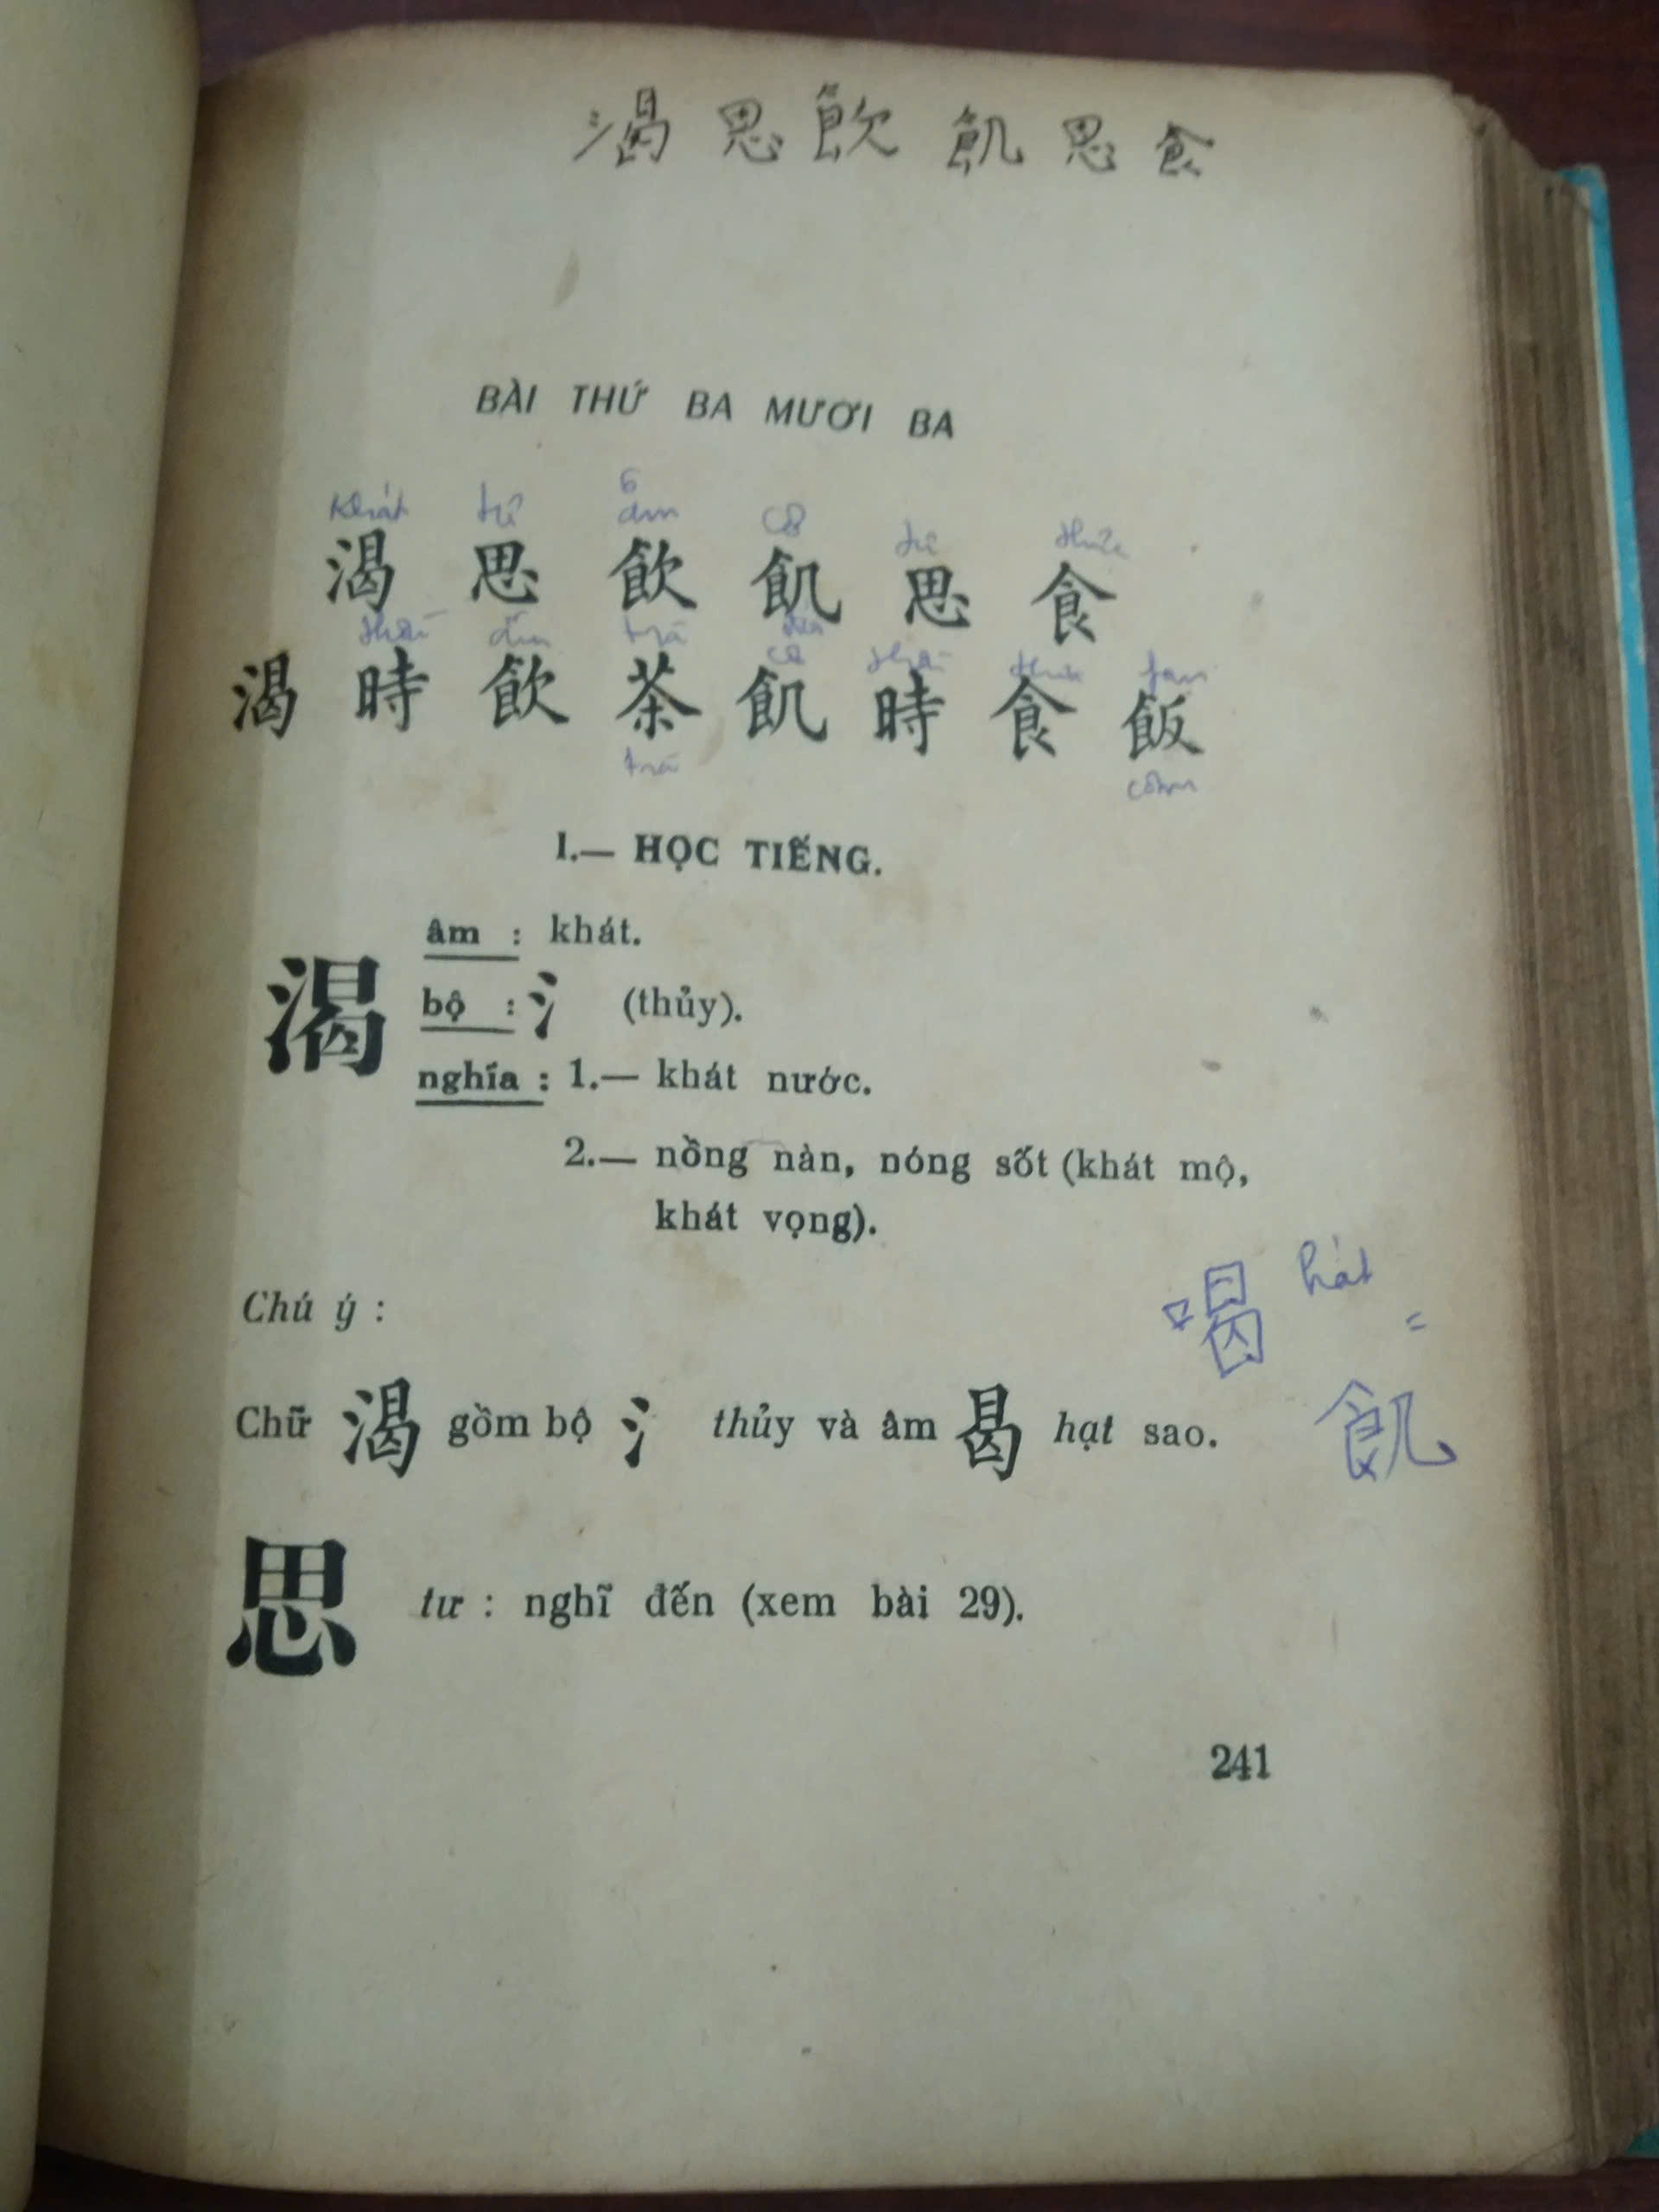 渴思飲飢思食
BÀI THỨ BA MƯƠI BA
Khát tư ẩm cơ tư thức
渴思飲飢思食
thời ẩm trà cơ thời thức fan
渴時飲茶飢時食飯
trà cơm
I.— HỌC TIẾNG.
渴 âm : khát.
bộ : 氵 (thủy).
nghĩa : 1.— khát nước.
2.— nồng nàn, nóng sốt (khát mộ,
khát vọng).
喝 hát
Chú ý :
=
Chữ 渴 gồm bộ 氵 thủy và âm 曷 hạt sao.
飢
思 tư : nghĩ đến (xem bài 29).
241